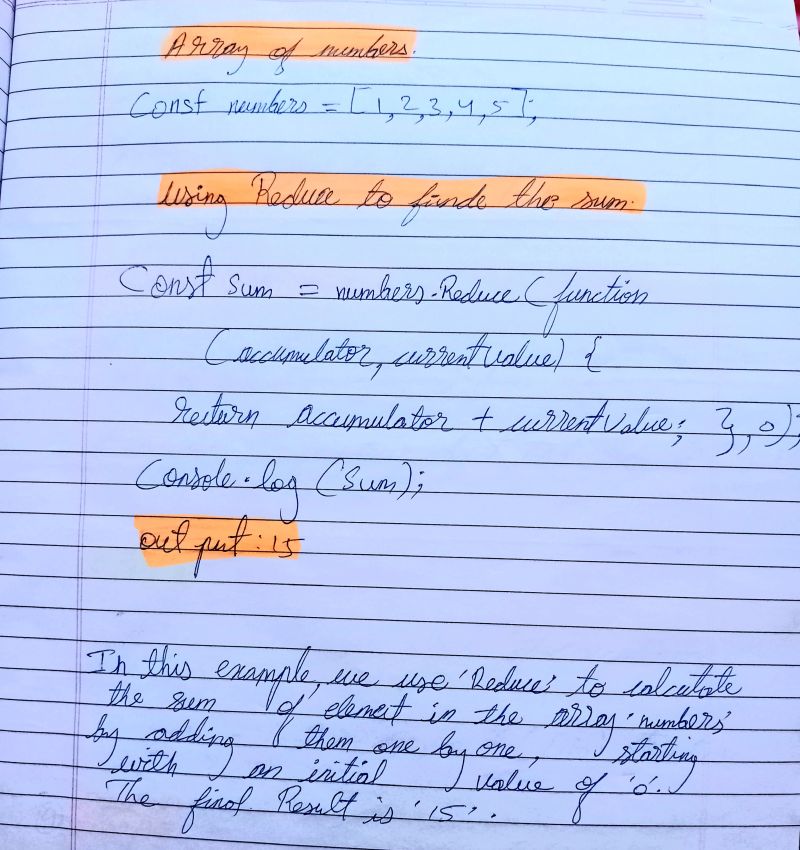 Array of numbers.
Const numbers = [1,2,3,4,5];
Using Reduce to finde the sum.
Const Sum = numbers.Reduce (function
(accumulator, currentvalue) {
return accumulator + currentValue; }, 0);
Console.log (Sum);
out put : 15
In this example, we use 'Reduce' to calculate
the sum of element in the array 'numbers'
by adding them one by one, starting
with an initial value of '0'.
The final Result is '15'.